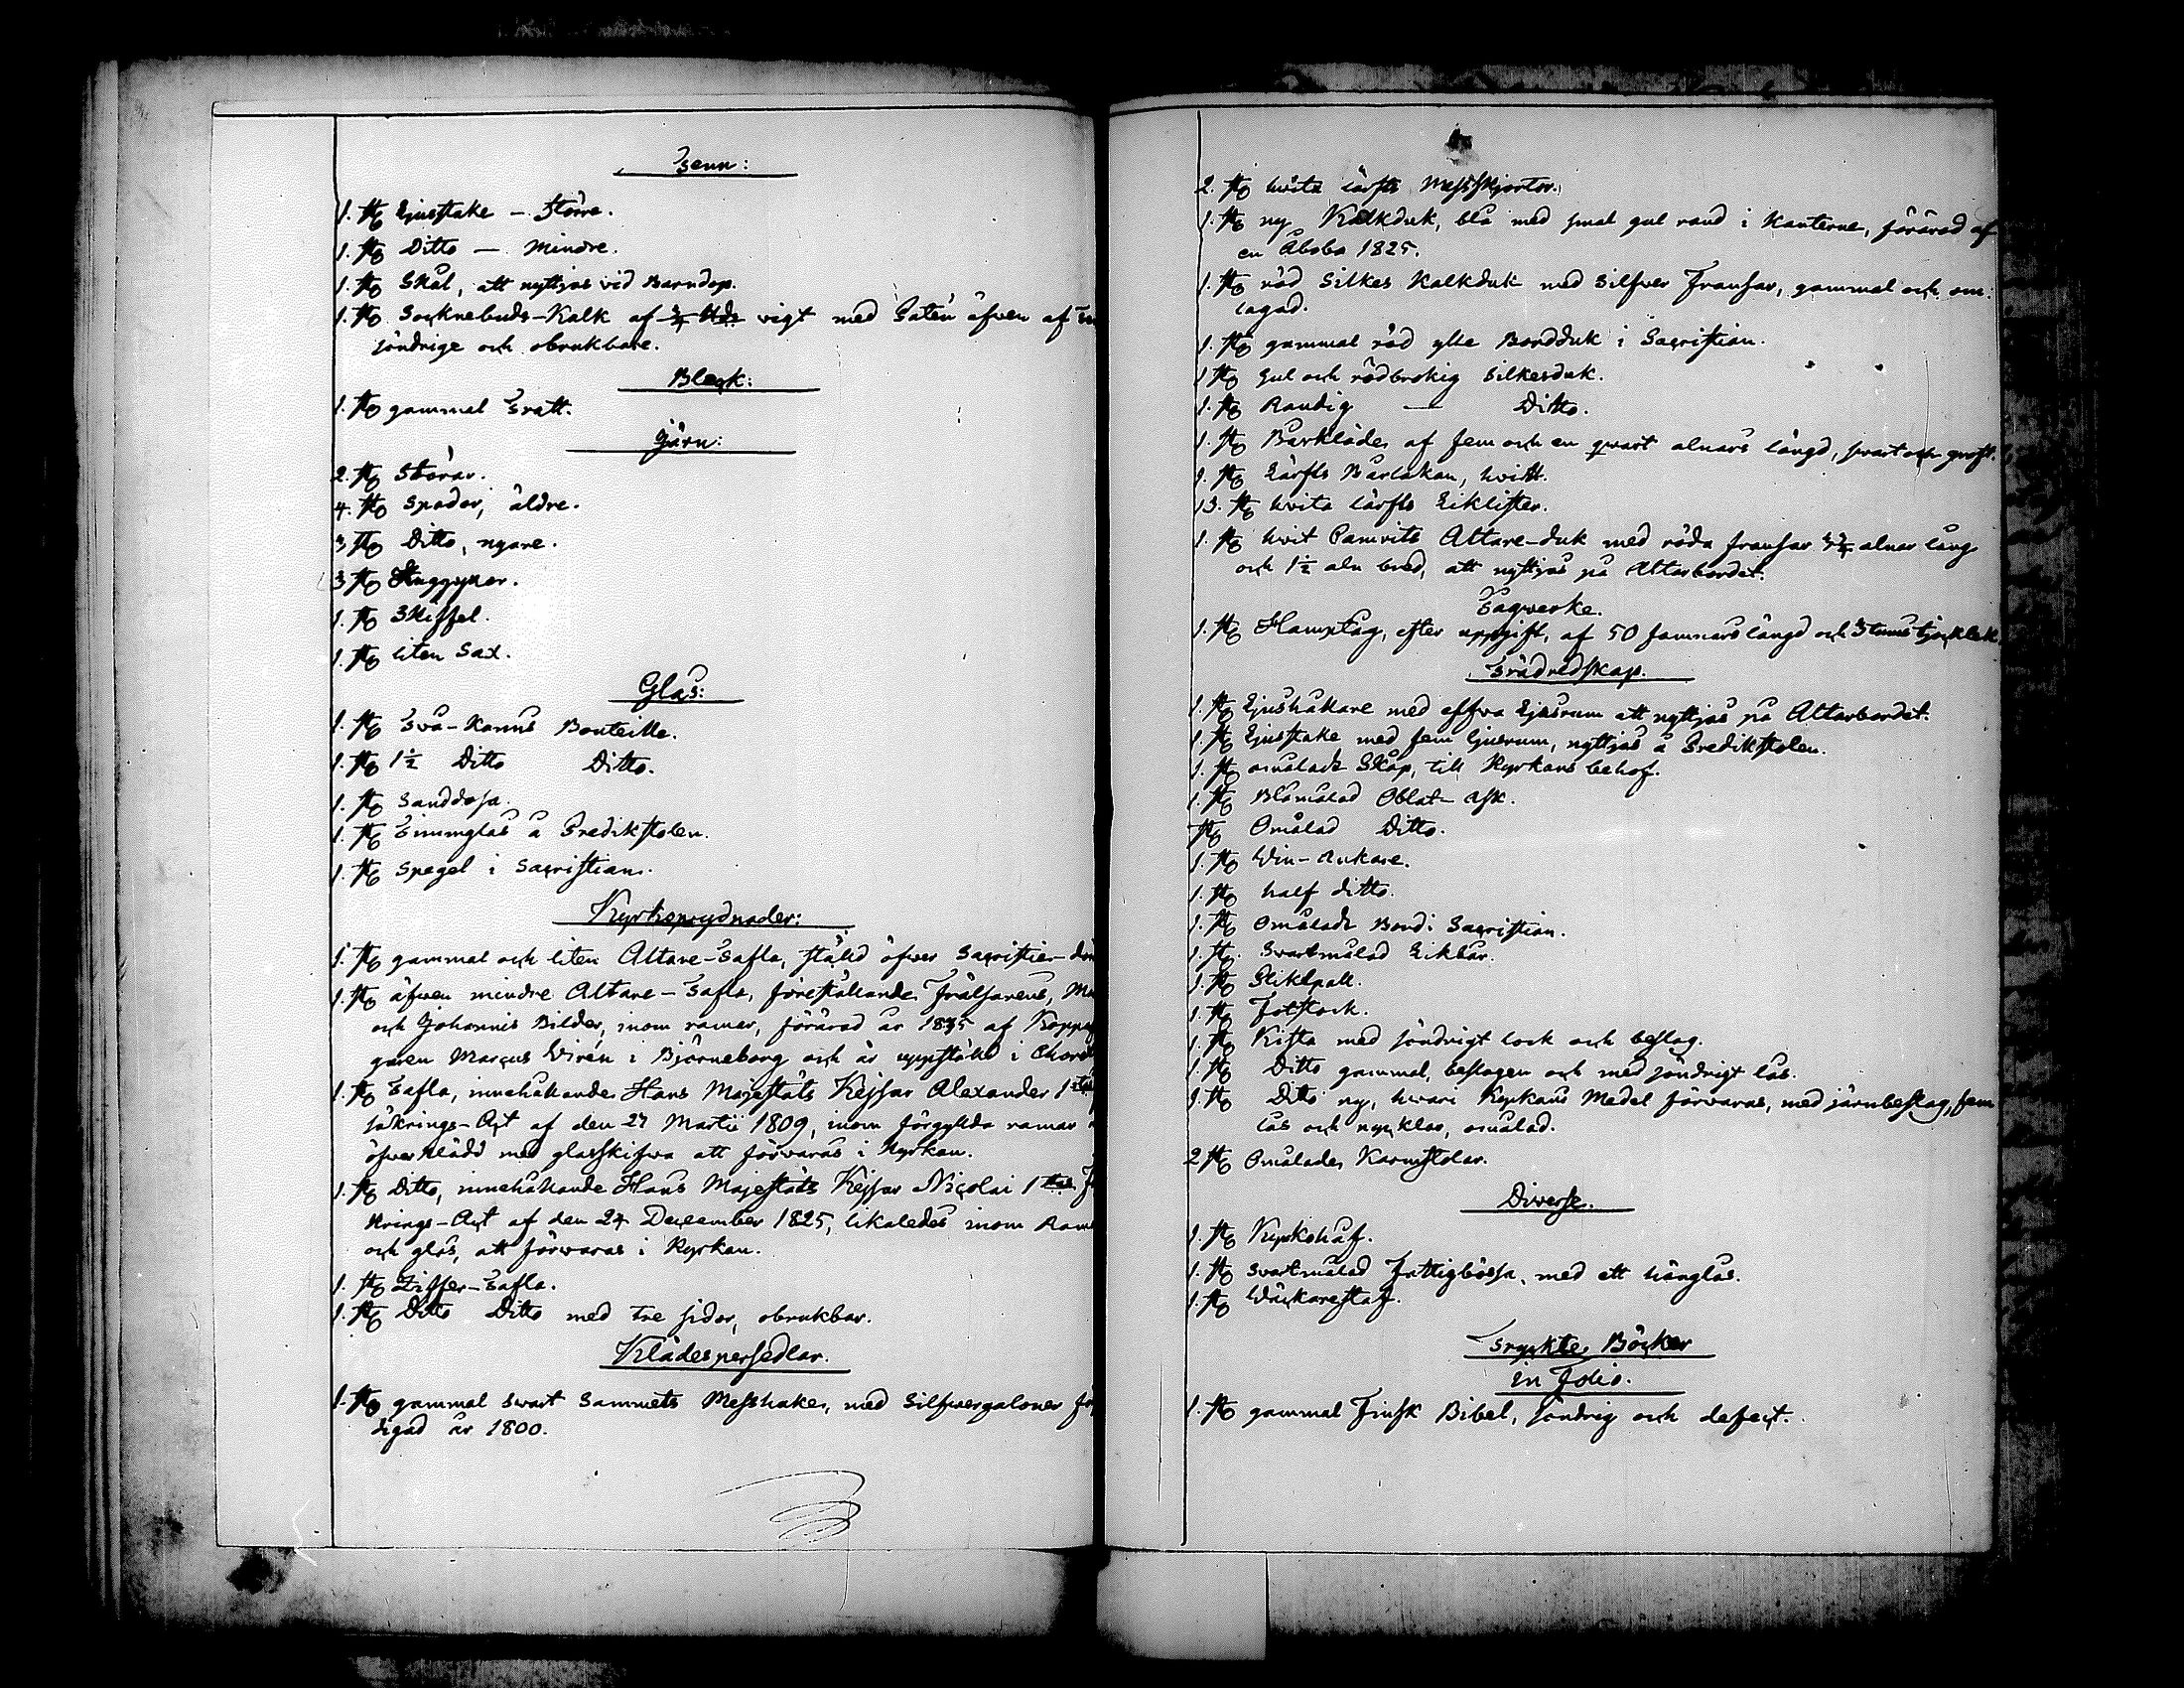 Tenn:
1. st. Ljusstake – Större.
1. st. Ditto — Mindre.
1. st. Skål, att nyttjas vid Barndop.
1. st. Socknebuds-Kalk af vigt med Patén äfven af
söndrige och obrukbare.
Bleck:
1. st. gammal Tratt.
Järn:
2. st. Störar.
4. st. Spador, äldre.
3 st. Ditto, nyare.
3 st.
1. st. Skiffel.
1. st. liten Sax.
Glas:
1. st. Två-Kanns Bouteille.
1. st. 1½ Ditto Ditto.
1. st. Sanddosa.
1. st. Timmglas å Predikstolen.
1. st. Spegel i Sacristian.
Kyrkoprydnader:
1. st. gammal och liten Altare-Tafla, stäld öfver Sacristie-
1. st. äfwen mindre Altare-Tafla, föreställande Frälsarens,
och Johannis Bilder, inom ramar, förärad år 1835 af
garen Marcus Wirén i Björneborg och är uppstäld i
1. st. Tafla, innehållande Hans Majestäts Kejsar Alexander 1
säkrings-Act af den 27 Martii 1809, inom förgyllda ramar
öfverklädd med glasskifwa att förvaras i Kyrkan.
1. st. Ditto, innehållande Hans Majestäts Kejsar Nicolai 1
krings-Act af den 24 December 1825, likaledes inom
och glas, att förwaras i Kyrkan.
1. st. Ziffer-Tafla.
1. st. Ditto Ditto med tre sidor, obrukbar.
Klädespersedlar.
1. st. gammal swart Sammets Messhake, med Silfwergaloner
digad år 1800.
2. st. hwita lärfts Messskjortor.
1. st. ny Kalkduk, blå med smal gul rand i Kanterne, förärad af
en Åbobo 1825.
1. st. röd Silkes Kalkduk med Silfwer Fransar, gammal och om:
lagad.
1. st. gammal röd ylle Bordduk i Sacristian.
1 st. Gul och rödbrokig Silkesduk.
1. st. Randig — Ditto.
1. st. Barkläde, af fem och en qvart alnars längd, svart och
1. st. Lärfts Barlakan, hvitt.
13. st. hvita lärfts Liklister.
1. st. hvit Altare-duk med röda fransar alnar lång
och 1½ aln bred, att nyttjas på Altarbordet.
Tagwerke.
1. st. Hamptåg, efter uppgift, af 50 famnars längd och 3 tums tjocklek.
Trädredskap.
1. st. Ljushållare med elfwa Ljusrum att nyttjas på Altarbordet.
1. st. Ljusstake med fem ljusrum, nyttjas å Predikstolen.
1. st. omåladt Skåp, till Kyrkans behof.
1. st. Blåmålad Oblat-ask.
st. Omålad Ditto.
1. st. Win-Ankare.
1. st. half ditto.
1. st. Omåladt Bord i Sacristian.
1. st. Svartmålad Likbår.
1. st. Pliktpall.
1. st. Fotstock.
1. st. Kista med söndrigt lock och beslag.
1. st. Ditto gammal, beslagen och med söndrigt lås.
1. st. Ditto ny, hwari Kyrkans Medel förvaras, med järnbeslag, fem
lås och nycklar, omålad.
2 st. Omålade, Karmstolar.
Diverse.
1. st. Kyrkohåf.
1. st. svartmålad Fattigbössa, med ett hänglås.
1. st. Wäckarestaf.
Tryckte Böcker
in Folio.
1. st. gammal Finsk Bibel, söndrig och defect.